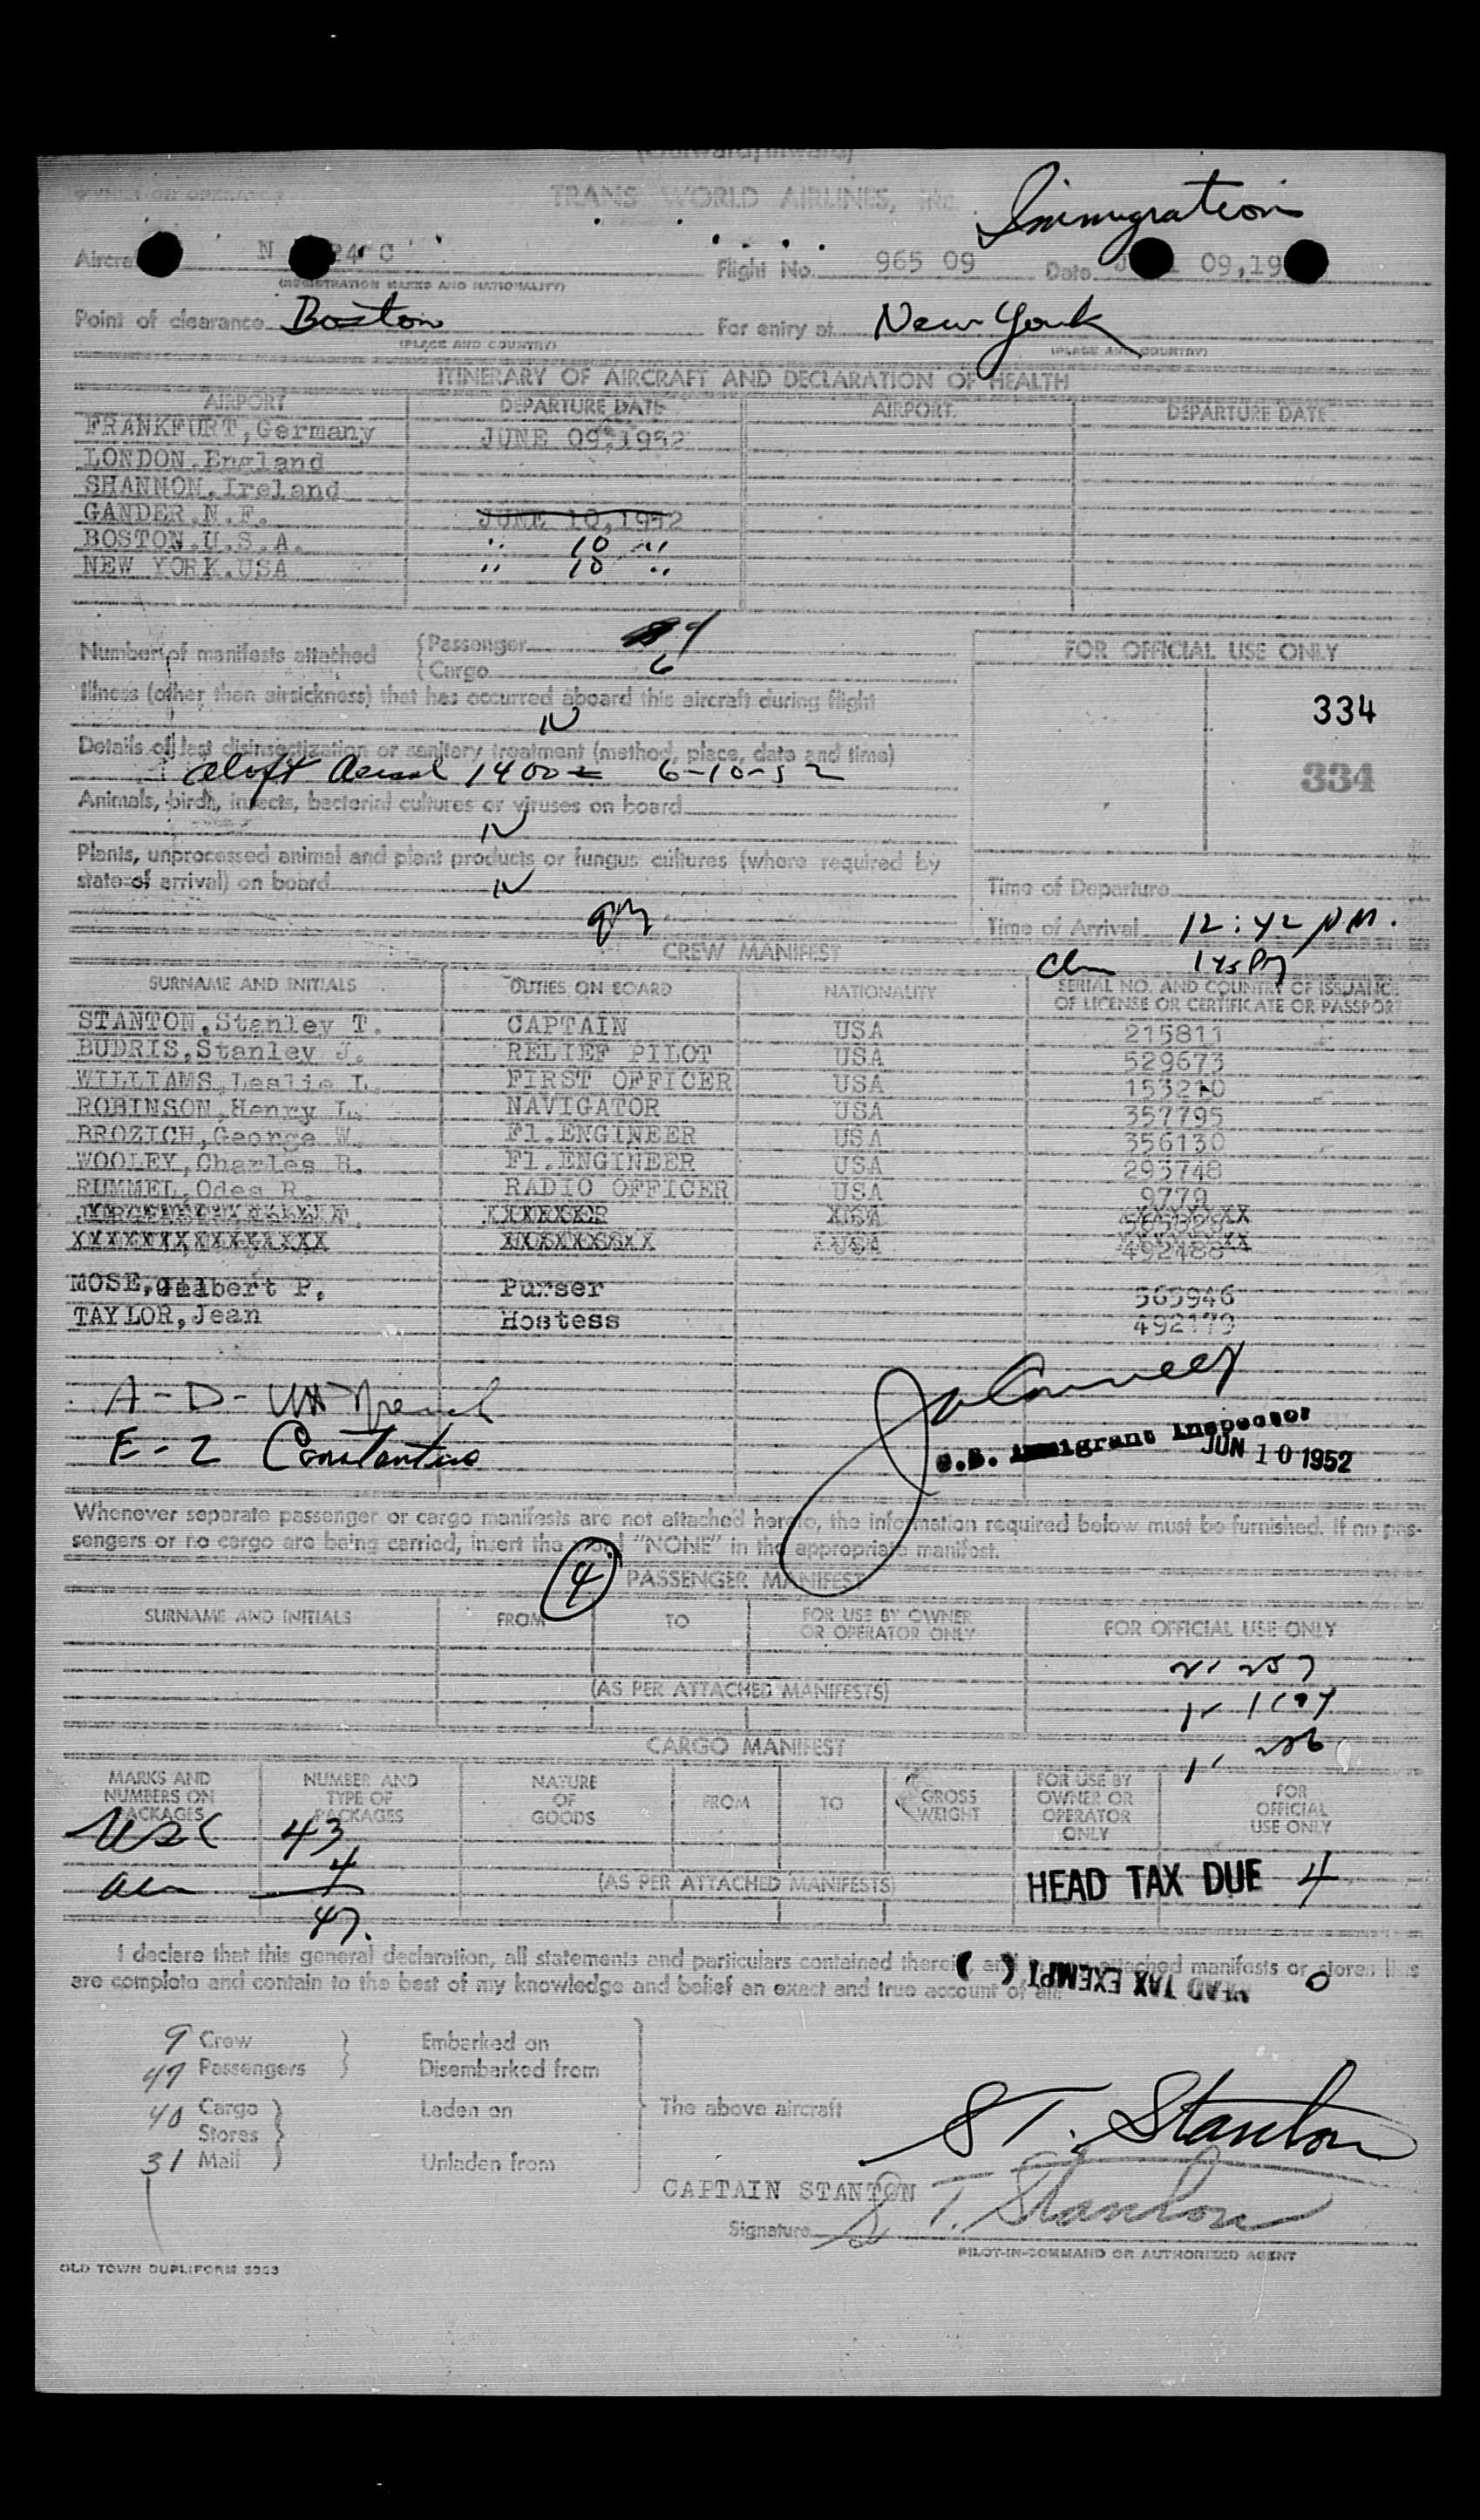 (Outward/Inward)
OWNER OR OPERATOR TRANS WORLD AIRLINES, INC.
Immigration
N 24 C Flight No. 965 09 Date 09,19
(REGISTRATION MARKS AND NATIONALITY)
Point of clearance Boston For entry at New York
(PLACE AND COUNTRY) (PLACE AND COUNTRY)
ITINERARY OF AIRCRAFT AND DECLARATION OF HEALTH
AIRPORT DEPARTURE DATE AIRPORT DEPARTURE DATE
FRANKFURT,Germany JUNE 09,1952
LONDON.England
SHANNON.Ireland
GANDER.N.F. JUNE 10,1952
BOSTON.U.S.A. " 10 "
NEW YORK.USA " 10 "
Number of manifests attached { Passenger
{ Cargo 6
FOR OFFICIAL USE ONLY
Illness (other than airsickness) that has occurred aboard this aircraft during flight
334
N
Details of last disinsectization or sanitary treatment (method, place, date and time)
aloft 1400 6-10-52
334
Animals, birds, insects, bacterial cultures or viruses on board
N
Plants, unprocessed animal and plant products or fungus cultures (where required by
state of arrival) on board N
Time of Departure
Time of Arrival 12:42 PM.
CREW MANIFEST
SURNAME AND INITIALS DUTIES ON BOARD NATIONALITY SERIAL NO. AND COUNTRY OF ISSUANCE
OF LICENSE OR CERTIFICATE OR PASSPORT
STANTON,Stanley T. CAPTAIN USA 215811
BUDRIS,Stanley J. RELIEF PILOT USA 529673
WILLIAMS,Leslie L. FIRST OFFICER USA 153210
ROBINSON,Henry L. NAVIGATOR USA 357795
BROZICH,George W. Fl.ENGINEER USA 356130
WOOLEY,Charles R. Fl.ENGINEER USA 293748
RUMMEL,Odes R. RADIO OFFICER USA 9779
MOSE,Gilbert P. Purser 363946
TAYLOR,Jean Hostess 492179
A-D-
E-2 Constantine
U.S. Immigrant Inspector
JUN 10 1952
Whenever separate passenger or cargo manifests are not attached hereto, the information required below must be furnished. If no pas-
sengers or no cargo are being carried, insert the word "NONE" in the appropriate manifest.
4 PASSENGER MANIFEST
SURNAME AND INITIALS FROM TO FOR USE BY OWNER
OR OPERATOR ONLY FOR OFFICIAL USE ONLY
(AS PER ATTACHED MANIFESTS)
CARGO MANIFEST
MARKS AND
NUMBERS ON
PACKAGES NUMBER AND
TYPE OF
PACKAGES NATURE
OF
GOODS FROM TO GROSS
WEIGHT FOR USE BY
OWNER OR
OPERATOR
ONLY FOR
OFFICIAL
USE ONLY
USC 43
4
(AS PER ATTACHED MANIFESTS)
HEAD TAX DUE 4
47.
I declare that this general declaration, all statements and particulars contained therein, and in attached manifests or stores lists
are complete and contain to the best of my knowledge and belief an exact and true account of all:
HEAD TAX EXEMPT 0
9 Crew } Embarked on
47 Passengers } Disembarked from
40 Cargo } Laden on The above aircraft
Stores
31 Mail } Unladen from
S T. Stanton
CAPTAIN STANTON
Signature S T. Stanton
PILOT-IN-COMMAND OR AUTHORIZED AGENT
OLD TOWN DUPLIFORM